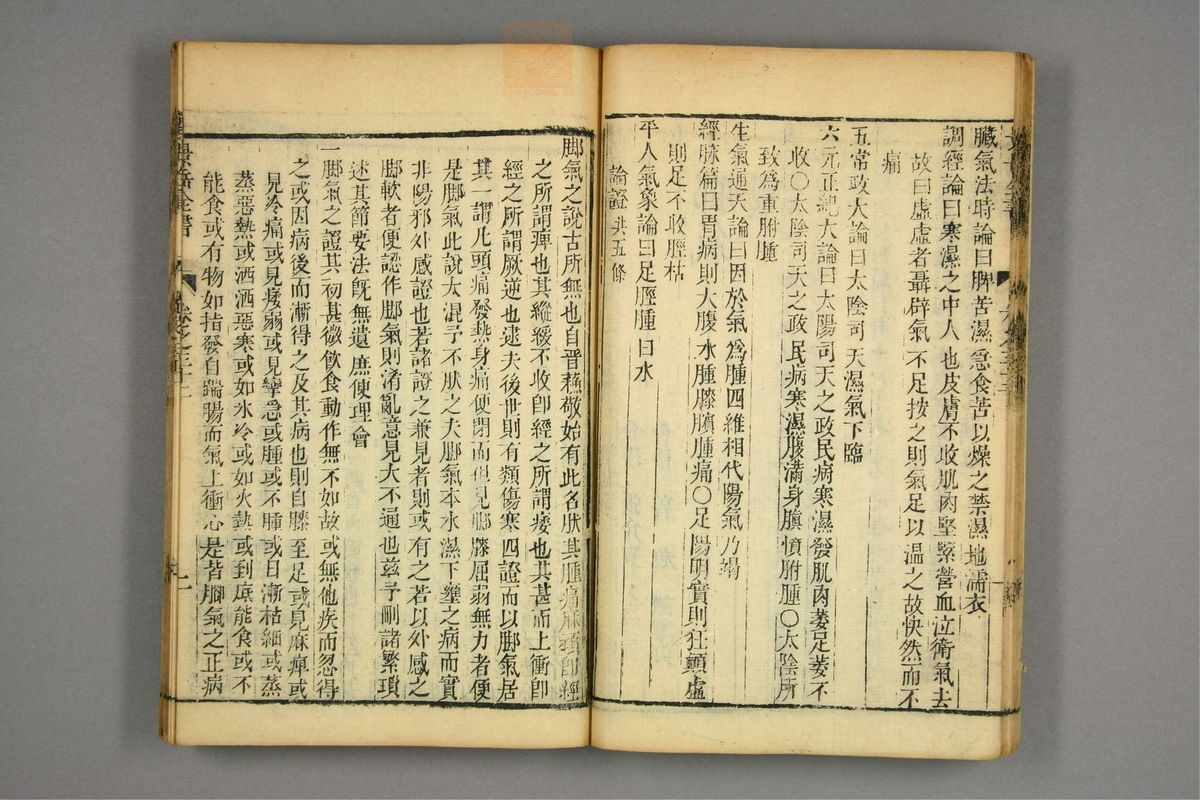 臟氣法時論曰脾苦濕急食苦以燥之禁濕地濡衣
調經論曰寒濕之中人也皮膚不收肌肉堅緊營血泣衛氣去
故曰虛虛者聶辟氣不足按之則氣足以溫之故快然而不
痛
五常政大論曰太陰司天濕氣下臨
六元正紀大論曰太陽司天之政民病寒濕發肌肉萎足萎不
收○太陰司天之政民病寒濕腹滿身䐜憤胕腫○太陰所
致爲重胕腫
生氣通天論曰因於氣爲腫四維相代陽氣乃竭
經脉篇曰胃病則大腹水腫膝臏腫痛○足陽明實則狂顚虛
則足不收脛枯
平人氣象論曰足脛腫曰水
論證共五條
脚氣之說古所無也自晉蘇敬始有此名然其腫痛麻頑卽經
之所謂痺也其縱緩不收卽經之所謂痿也其甚而上衝卽
經之所謂厥逆也逮夫後世則有類傷寒四證而以脚氣居
其一謂凡頭痛發熱身痛便閉而但見脚膝屈弱無力者便
是脚氣此說太混予不然之夫脚氣本水濕下壅之病而實
非陽邪外感證也若諸證之兼見者則或有之若以外感之
脚軟者便認作脚氣則淆亂意見大不通也茲予刪諸繁瑣
述其節要法旣無遺庶便理會
一脚氣之證其初甚微飲食動作無不如故或無他疾而忽得
之或因病後而漸得之及其病也則自膝至足或見麻痺或
見冷痛或見痿弱或見攣急或腫或不腫或日漸枯細或蒸
蒸惡熱或洒洒惡寒或如氷冷或如火熱或到底能食或不
能食或有物如指發自踹腸而氣上衝心是皆脚氣之正病